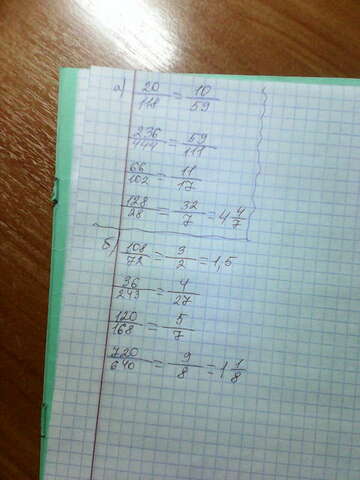 а) 20/118 = 10/59
236/444 = 59/111
66/102 = 11/17
128/28 = 32/7 = 4 4/7
б) 108/72 = 3/2 = 1,5
36/243 = 4/27
120/168 = 5/7
720/640 = 9/8 = 1 1/8